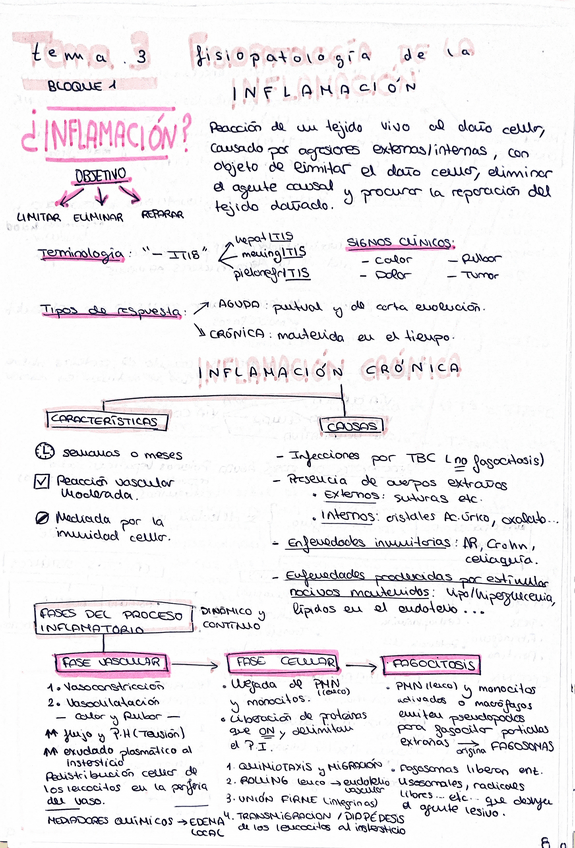 tema. 3 fisiopatología de la
BLOQUE 1 INFLAMACIÓN
¿INFLAMACIÓN?
Reacción de un tejido vivo al daño celular,
causado por agresiones externas/internas, con
objeto de limitar el daño celular, eliminar
el agente causal y procurar la reparación del
tejido dañado.
OBJETIVO
LIMITAR ELIMINAR REPARAR
Terminología: "-ITIS"
hepatITIS
meningITIS
pielonefrITIS
SIGNOS CLÍNICOS:
- Calor - Rubor
- Dolor - Tumor
Tipos de respuesta:
AGUDA: puntual y de corta evolución.
CRÓNICA: mantenida en el tiempo.
INFLAMACIÓN CRÓNICA
CARACTERÍSTICAS
semanas o meses
Reacción vascular
moderada.
Mediada por la
inmunidad celular.
CAUSAS
- Infecciones por TBC (no fagocitosis)
- Presencia de cuerpos extraños
• Externos: suturas etc.
• Internos: cristales Ac. úrico, oxalato...
- Enfermedades inmunitarias: AR, Crohn,
celiaquía.
- Enfermedades producidas por estímulos
nocivos mantenidos: hipo/hiperglucemia,
lípidos en el endotelio...
FASES DEL PROCESO
INFLAMATORIO
DINÁMICO y
CONTINUO
FASE VASCULAR
1. Vasoconstricción
2. Vasodilatación
- calor y Rubor -
↑↑ flujo y P.H (Tensión)
↑↑ exudado plasmático al
intersticio
Redistribución celular de
los leucocitos en la periferia
del vaso.
MEDIADORES QUÍMICOS → EDEMA
LOCAL
FASE CELULAR
• llegada de PMN
(leuco)
y monocitos.
• Liberación de proteínas
que ON y delimitan
el P.I.
1. QUIMIOTAXIS y MIGRACIÓN
2. ROLLING leuco → endotelio
vascular
3. UNIÓN FIRME (integrinas)
4. TRANSMIGRACIÓN / DIAPÉDESIS
de los leucocitos al intersticio
FAGOCITOSIS
• PMN (leuco) y monocitos
activados o macrófagos
emiten pseudópodos
para fagocitar partículas
extrañas → origina FAGOSOMAS
• Fagosomas liberan enz.
lisosomales, radicales
libres... etc. que destruyen
el agente lesivo.